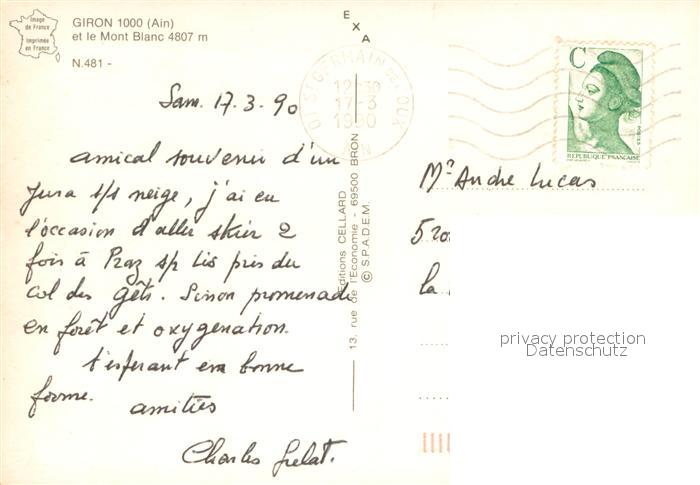 Image
de France
Imprimée
en France
GIRON 1000 (Ain)
et le Mont Blanc 4807 m
N.481 -
EXA
01 ST GERMAIN DE JOUX
12-30
17-3
1990
AIN
C
REPUBLIQUE FRANÇAISE
Sam. 17.3.90
amical souvenir d'un
Jura s/s neige, j'ai eu
l'occasion d'aller skier 2
fois à Praz sp Lis près du
col des Gêts. Sinon promenade
en forêt et oxygenation.
t'espérant en bonne
forme. amitiés
Charles
Editions CELLARD
13, rue de l'Economie - 69500 BRON
© S.P.A.D.E.M.
Mr André Lucas
5
la
privacy protection
Datenschutz